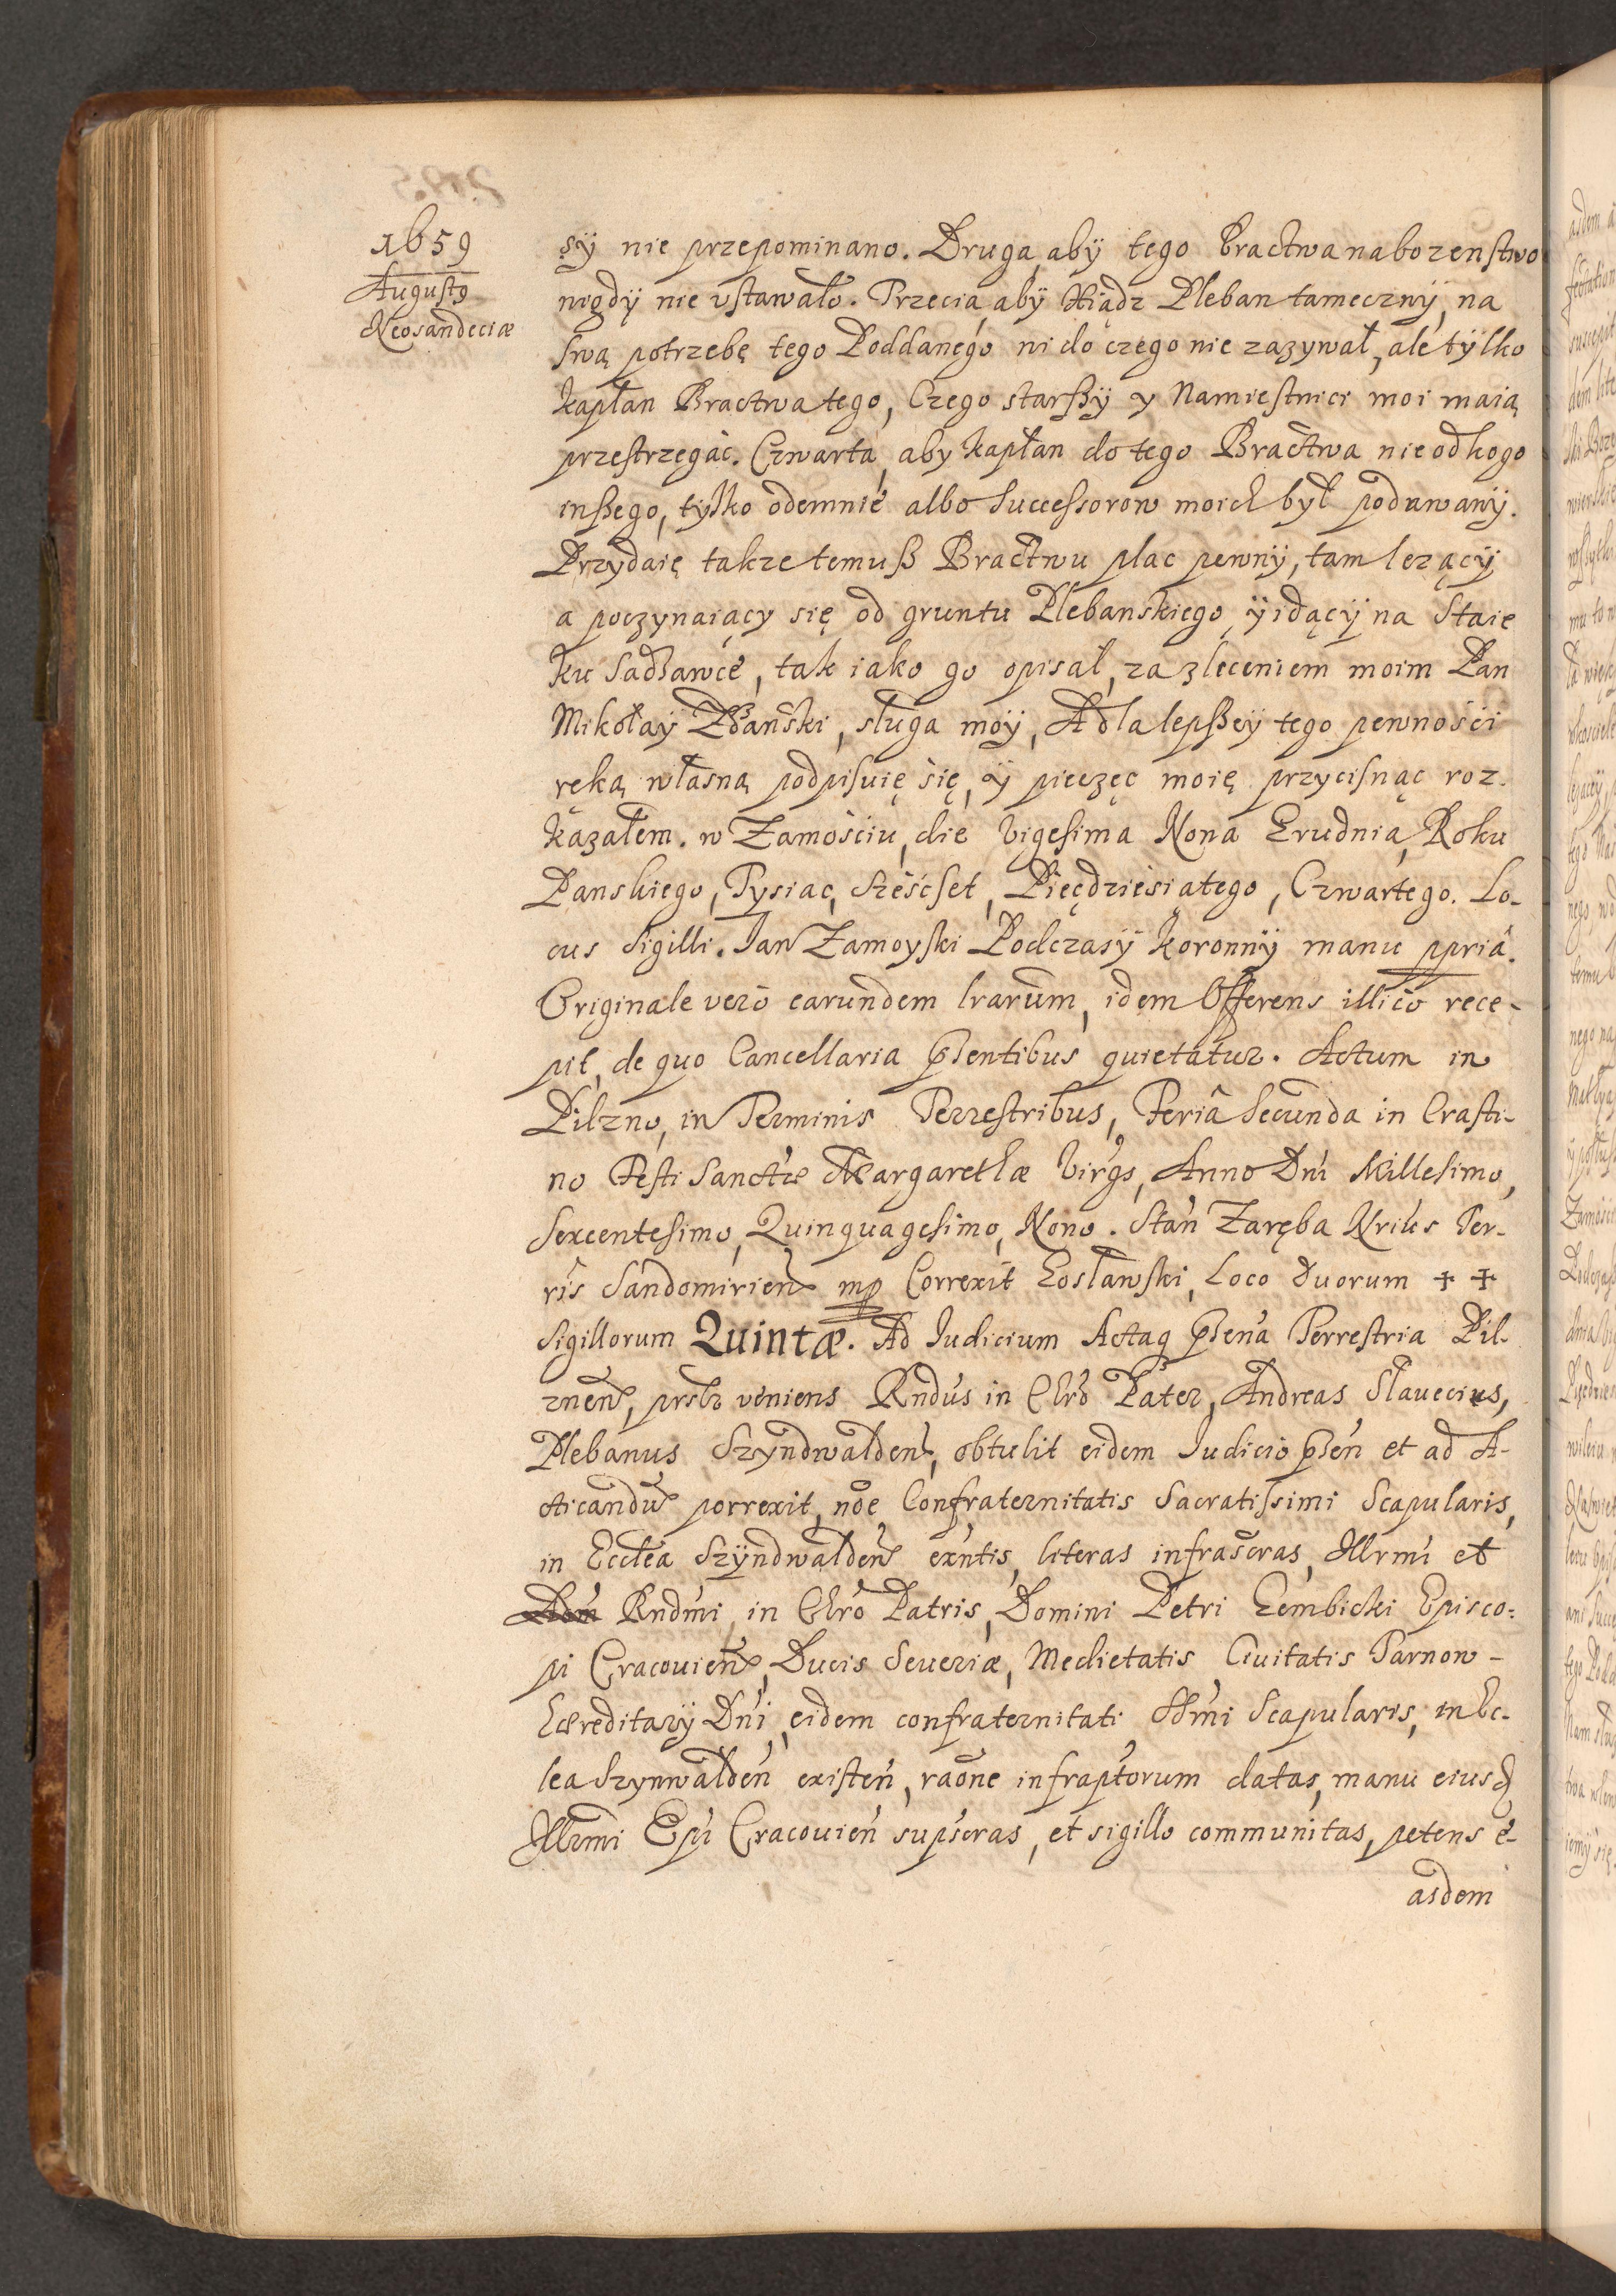 1659
Augustꝯ
Neosandeciæ
sÿ nie przepominano. Druga, abÿ tego Bractwa nabozenstwo
nigdÿ nie vstawało. Trzecia, abÿ Xiądz Pleban tamecznÿ, na
swą potrzebę tego Poddanego ni do czego nie zazywał, ale tÿlko
kapłan Bractwa tego, Czego starßÿ y Namiestnici moi maią
przestrzegać. Czwarta, aby kapłan do tego Bractwa nie od kogo
inßego, tylko odemnie albo Successorow moich był podawanÿ.
Przydaię takze temuß Bractwu plac pewnÿ, tam lezącÿ
a poczynaiący się od gruntu Plebanskiego, ÿ idącÿ na Staie
ku Sadzawce, tak iako go opisał, za zleceniem moim Pan
Mikołaÿ Zdzański, sługa moÿ, A dla lepßeÿ tego pewnośći
ręką własną podpisuię się, ÿ pieczęc moię przycisnąc roz-
kazałem. w Zamościu, die Vigesima Nona Grudnia, Roku
Panskiego, Tysiac, Sześcset, Pięcdziesiatego, Czwartego. Lo-
cus Sigilli. Jan Zamoyski Podczasÿ Koronnÿ manu ppriâ.
Originale verò earundem lrarum, idem Offerens illicò rece-
pit, de quo Cancellaria pñsentibus quietatur. Actum in
Pilzno, in Terminis Terrestribus, Feriâ Secunda in Crasti-
no Festi Sanctæ Margarethæ Virgs, Anno Dni Millesimo,
Sexcentesimo, Quinquagesimo, Nono. Stan Zaręba Nrius Ter-
ris Sandomirien mp Correxit Gosławski, Loco duorum ++
Sigillorum Quintæ. Ad Iudicium Actaq pñsena Terrestria Pil-
znen, prsltr veniens Rndus in Chro Pater, Andreas Slauecius,
Plebanus Szyndwalden, obtulit eidem Iudicio pñsen et ad A-
cticandu porrexit, noe Confraternitatis Sacratissimi Scapularis,
in Ecclea Szÿndwalden exntis, literas infrascras, Illrmi et
Rndmi in Chro Patris, Domini Petri Gembicki Episco-
pi Cracouien, Ducis Seueriæ, Medietatis Ciuitatis Tarnow-
hæreditarÿ Dni, eidem confraternitati SSmi Scapularis, in Ec-
lea Szynwalden existen, raone infraptorum datas, manu eiusd
Illrmi Epi Cracouien supscras, et sigillo communitas, petens e-
asdem